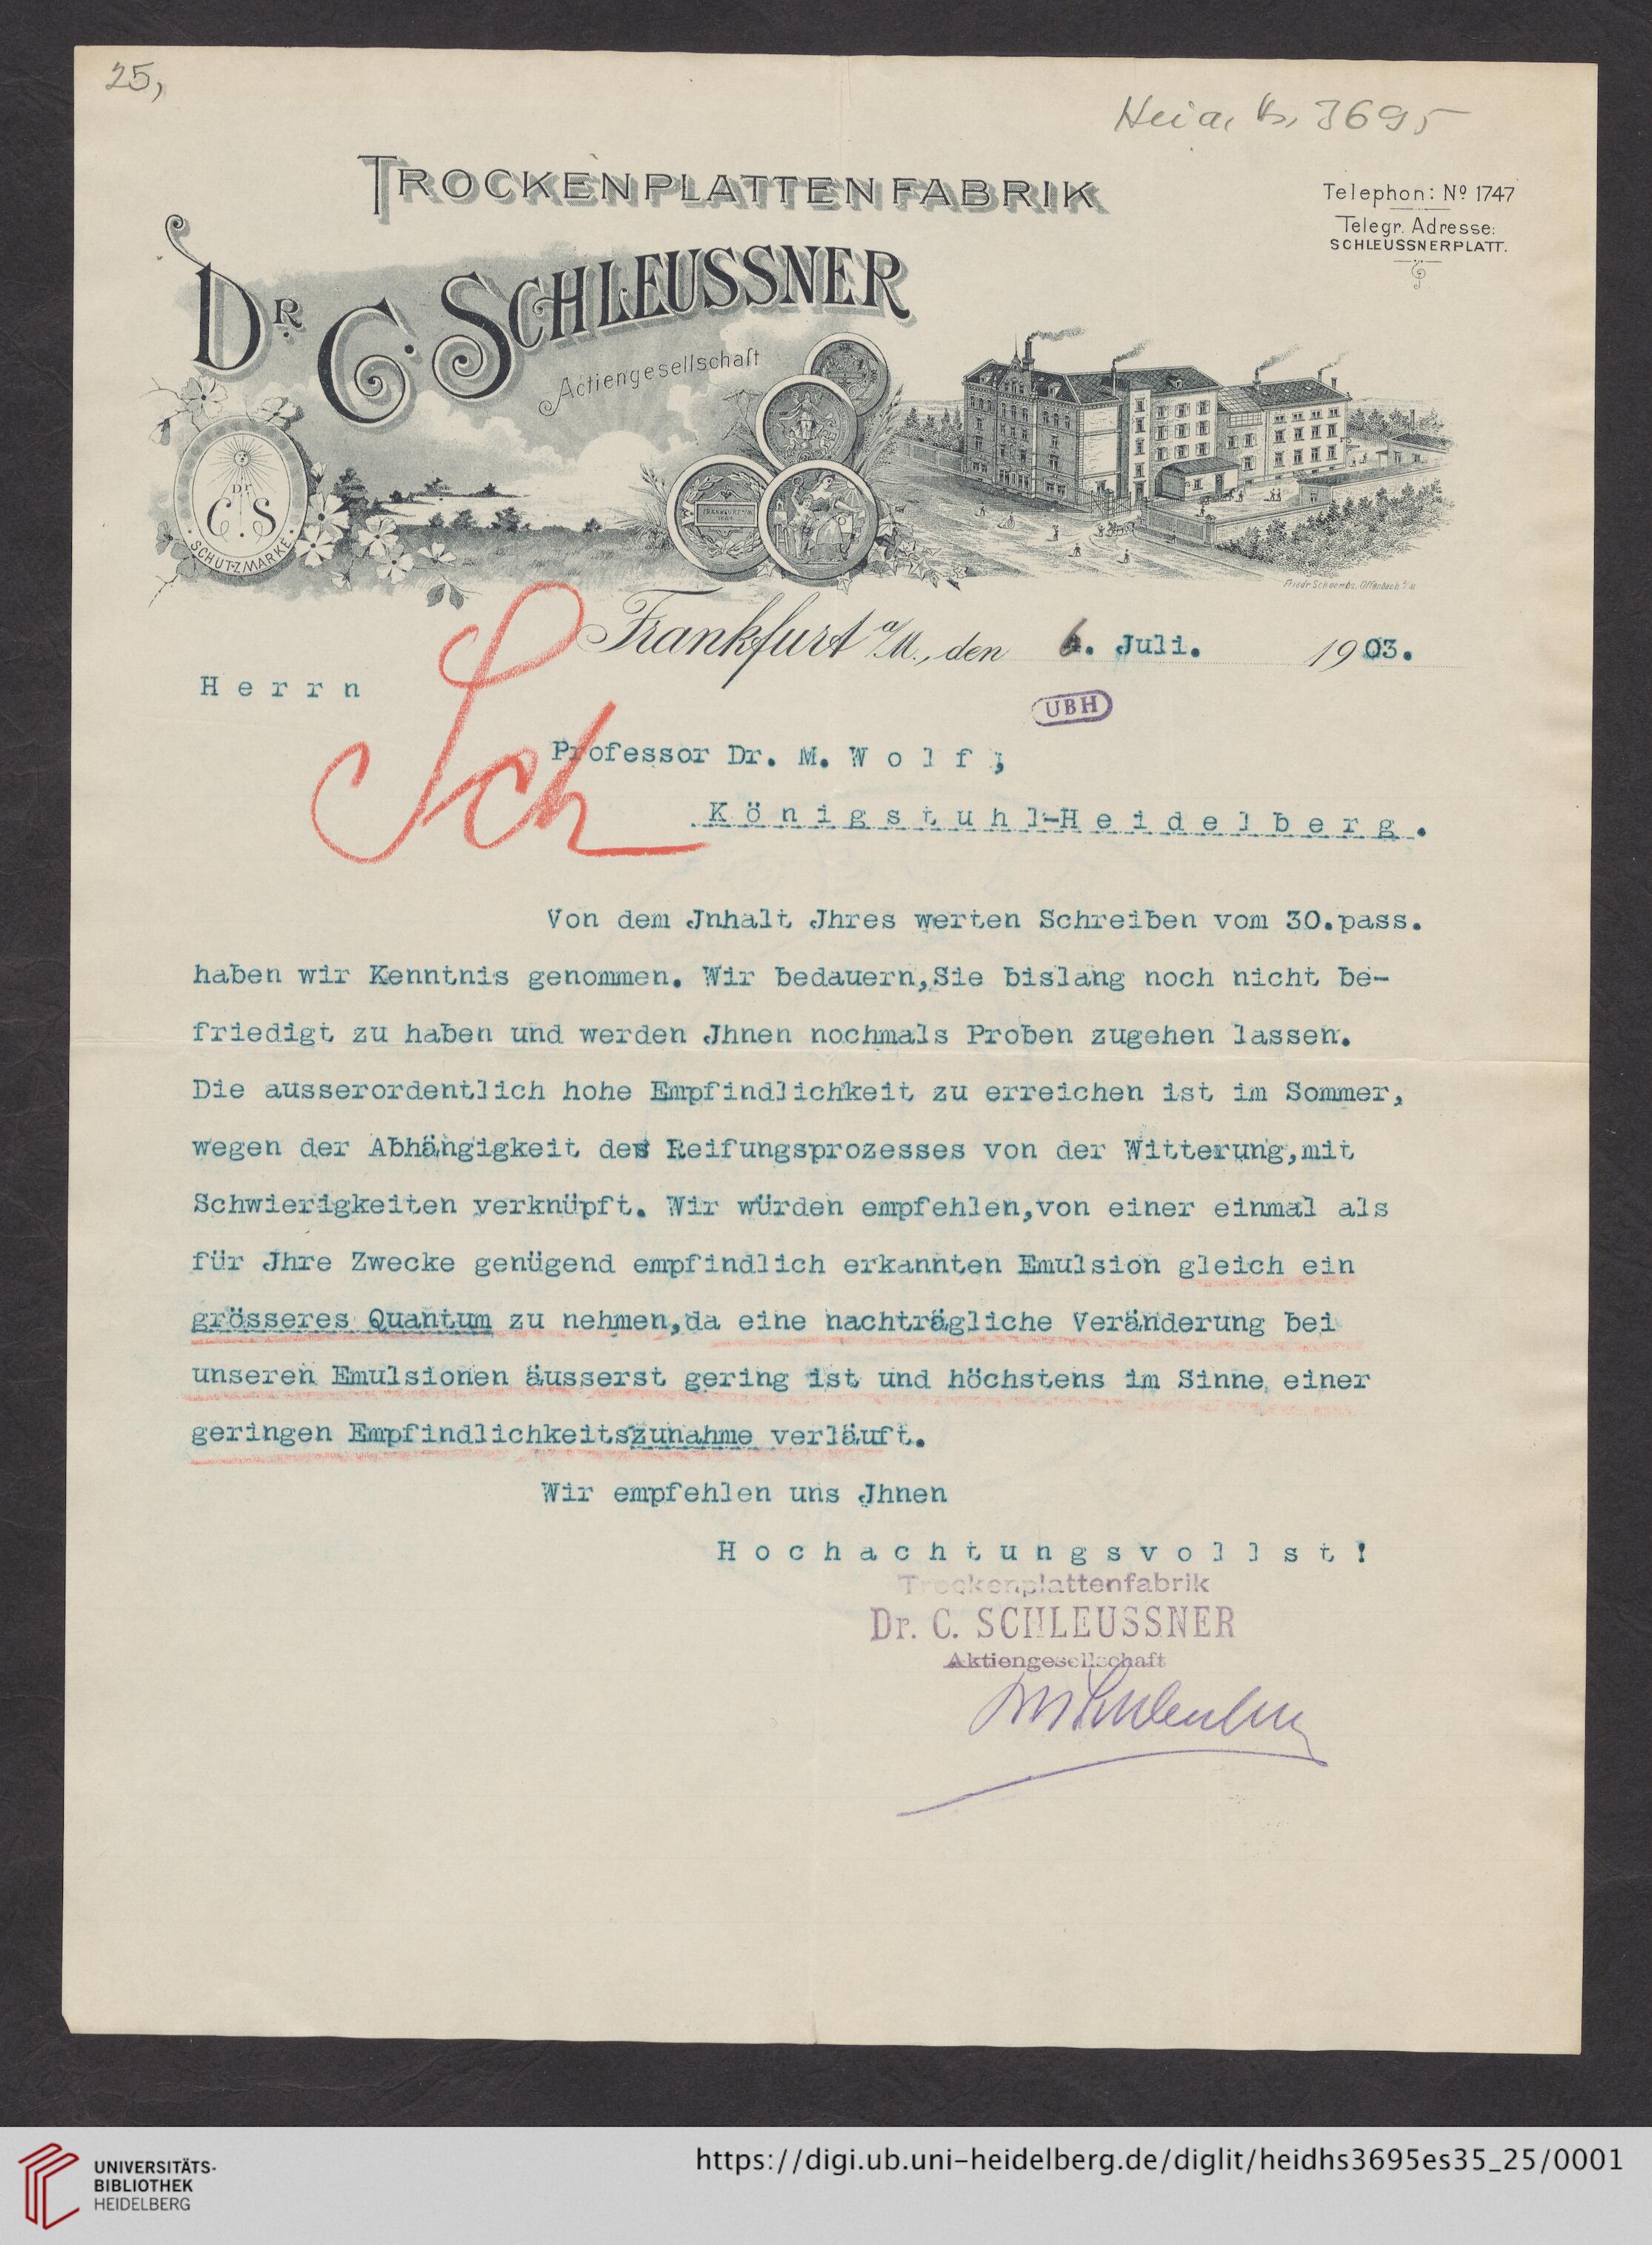 25,
Heid. Hs. 3695
TROCKENPLATTENFABRIK
Telephon: Nº 1747
Telegr. Adresse:
SCHLEUSSNERPLATT.
DR. C. SCHLEUSSNER
Actiengesellschaft
DR
C. S.
SCHUTZMARKE.
Friedr. Schoembs, Offenbach a/M
Frankfurt a/M., den 6. Juli. 1903.
Herrn
UBH
Sch
Professor Dr. M. Wolf,
Königstuhl-Heidelberg.
Von dem Jnhalt Jhres werten Schreiben vom 30.pass.
haben wir Kenntnis genommen. Wir bedauern,Sie bislang noch nicht be-
friedigt zu haben und werden Jhnen nochmals Proben zugehen lassen.
Die ausserordentlich hohe Empfindlichkeit zu erreichen ist im Sommer,
wegen der Abhängigkeit des Reifungsprozesses von der Witterung,mit
Schwierigkeiten verknüpft. Wir würden empfehlen,von einer einmal als
für Jhre Zwecke genügend empfindlich erkannten Emulsion gleich ein
grösseres Quantum zu nehmen,da eine nachträgliche Veränderung bei
unseren Emulsionen äusserst gering ist und höchstens im Sinne einer
geringen Empfindlichkeitszunahme verläuft.
Wir empfehlen uns Jhnen
Hochachtungsvollst!
Trockenplattenfabrik
Dr. C. SCHLEUSSNER
Aktiengesellschaft
UNIVERSITÄTS-
BIBLIOTHEK
HEIDELBERG
https://digi.ub.uni-heidelberg.de/diglit/heidhs3695es35_25/0001